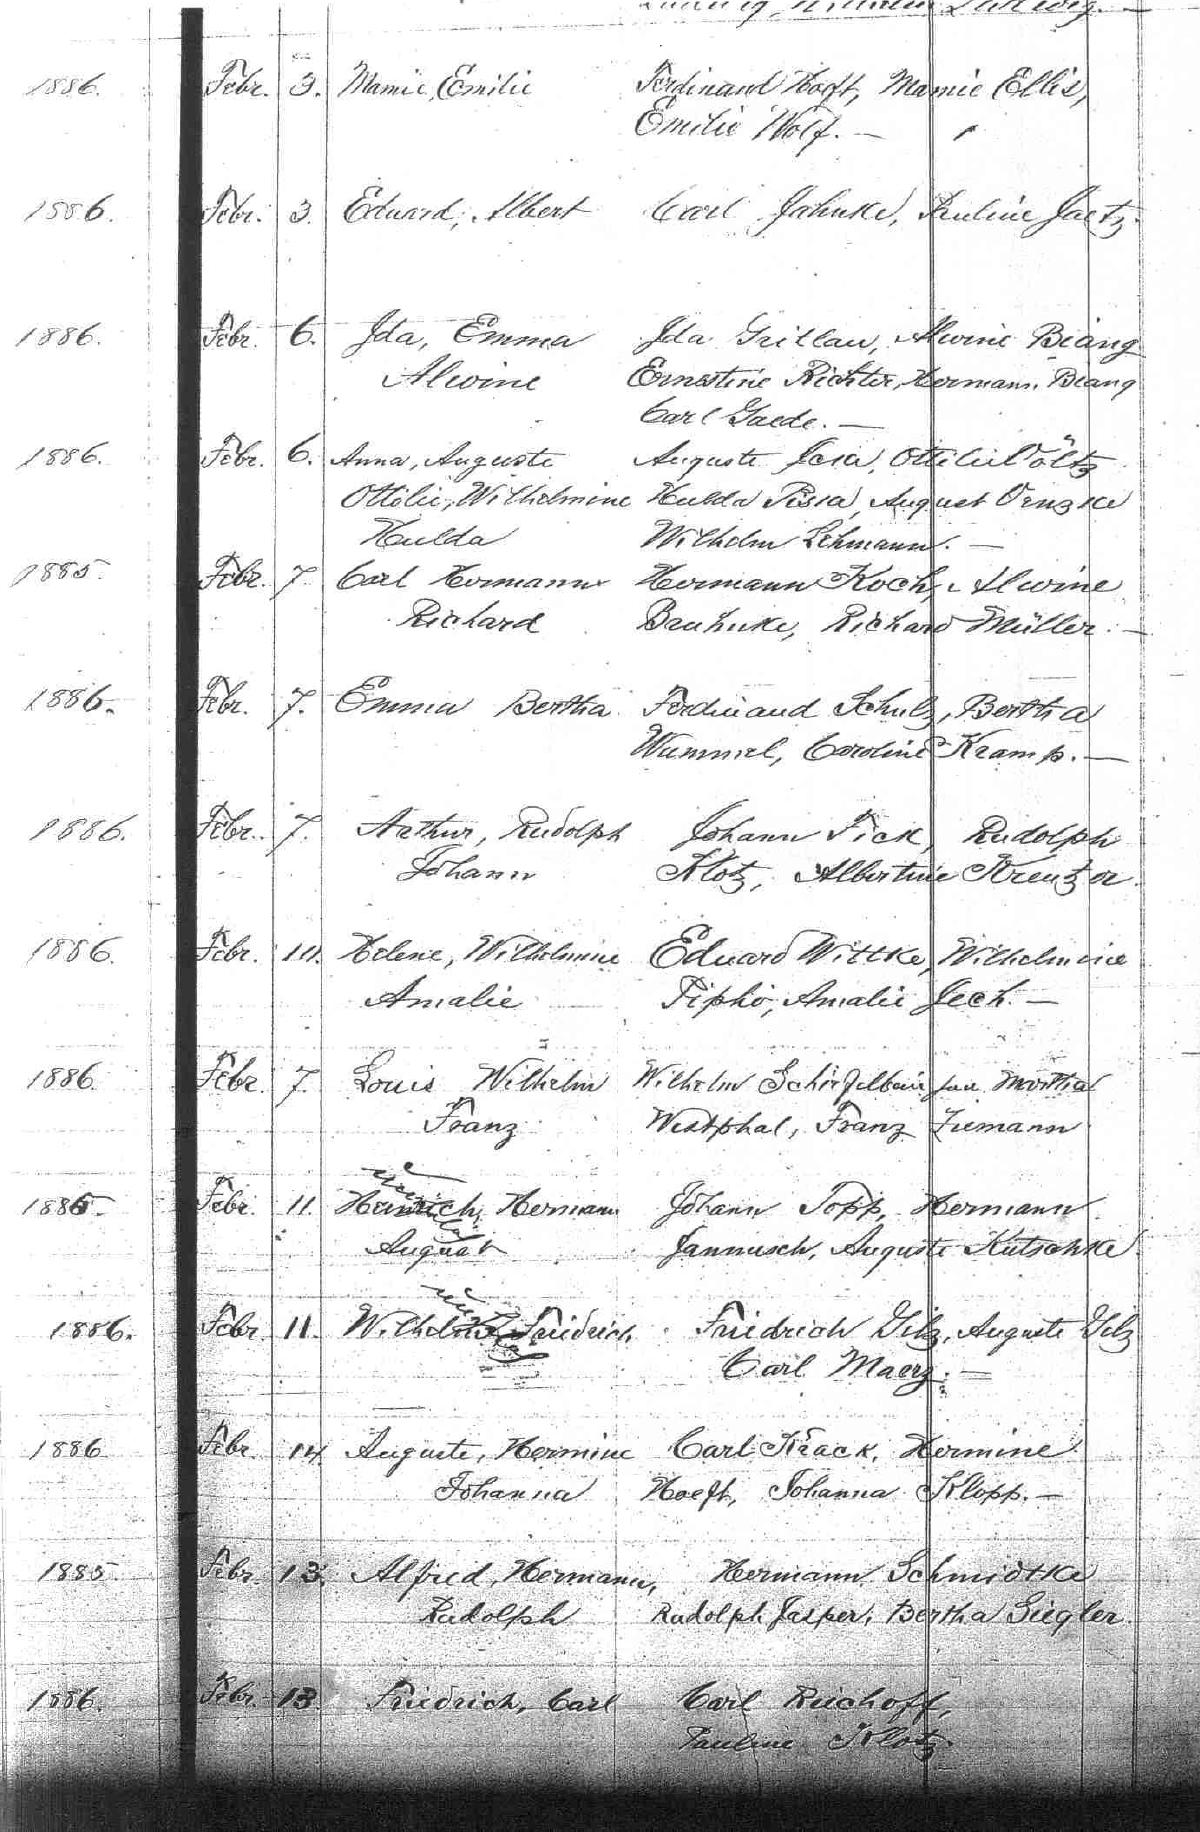 1886. Febr. 3. Mamie, Emilie Ferdinand Hoeft, Mamie Ellis,
Emilie Wolf. —
1886. Febr. 3. Eduard, Albert Carl Jahnke, Pauline Jaetz.
1886. Febr. 6. Ida, Emma Ida Grillau, Alwine Biang
Alwine Ernestine Richter, Hermann Biang
Carl Gaede. —
1886. Febr. 6. Anna, Auguste Auguste Ottilie Völtz
Ottilie, Wilhelmine Hulda Piska, August Venzke
Hulda Wilhelm Lehmann. —
1885. Febr. 7. Carl Hermann Hermann Koch, Alwine
Richard Bruhnke, Richard Müller. —
1886. Febr. 7. Emma Bertha Ferdinand Schulz, Bertha
Wummel, Caroline Kramp. —
1886. Febr. 7. Arthur, Rudolph Johann Pick, Rudolph
Johann Klotz, Albertine Kreutzer.
1886. Febr. 10. Helene, Wilhelmine Eduard Wittke, Wilhelmine
Amalie Pipho, Amalie Zech. —
1886. Febr. 7. Louis Wilhelm Wilhelm Schiefelbein Martha
Franz Westphal, Franz Ziemann
1885. Febr. 11. Heinrich, Hermann Johann Topp, Hermann
August Jannusch, Auguste Kutschke.
1886. Febr. 11. Friedrich Friedrich Gilz, Auguste Gilz
Carl Maerz. —
1886 Febr. 14 Auguste, Hermine Carl Krack, Hermine
Johanna Hoeft, Johanna Klopp. —
1885. Febr. 13. Alfred, Hermann, Hermann Schmidtke
Rudolph Rudolph Jasper, Bertha Siegler.
1886. Febr. 13. Friedrich, Carl Carl Reichoff,
Pauline Klotz.